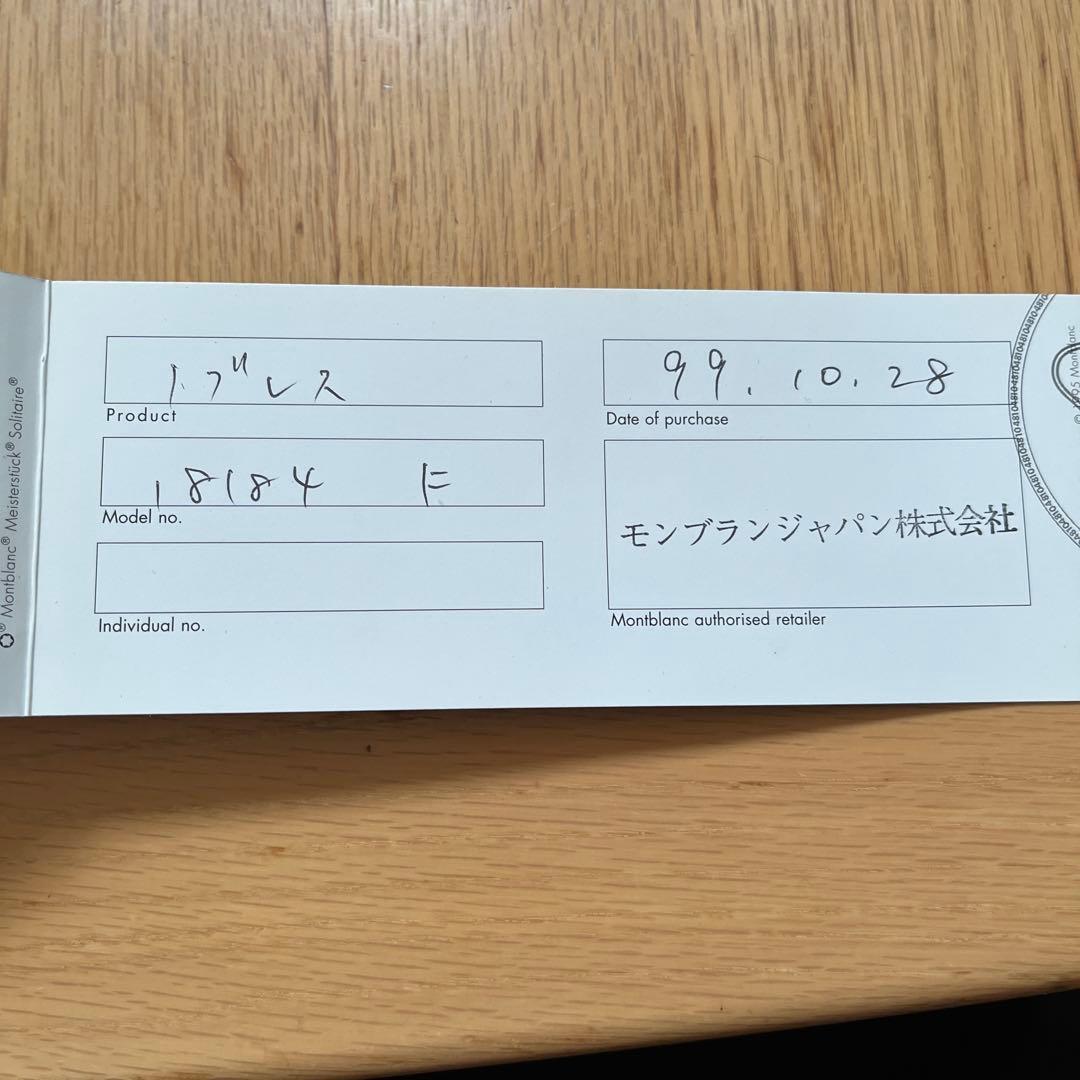 トブレス
Product
18184 F
Model no.
Individual no.
99.10.28
Date of purchase
モンブランジャパン株式会社
Montblanc authorised retailer
® Montblanc® Meisterstück® Solitaire®
1995 Montblanc
4810481048104810481048104810